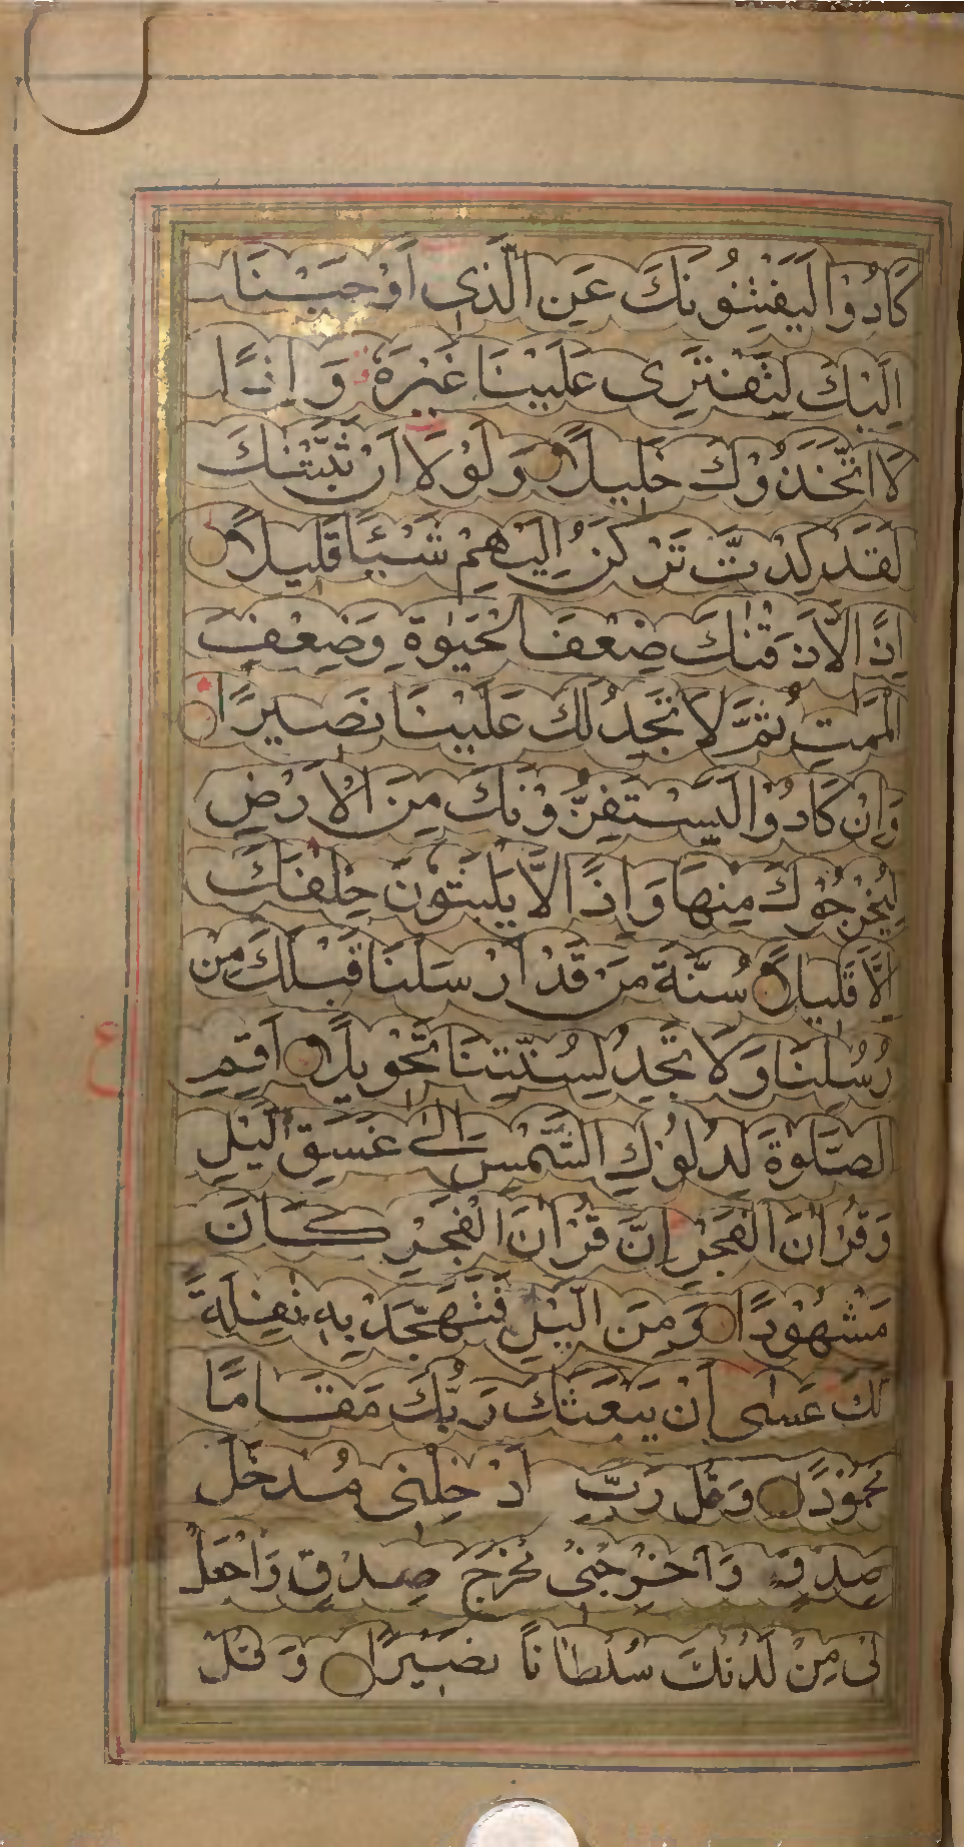 كَادُوْا لَيَفْتِنُوْنَكَ عَنِ الَّذِى اَوْحَيْنَا
اِلَيْكَ لِتَفْتَرِى عَلَيْنَا غَيْرَهُ وَاِذًا
لَا اتَّخَذُوْكَ خَلِيلًا وَلَوْلَا اَنْ ثَبَّتْنٰكَ
لَقَدْ كِدْتَّ تَرْكَنُ اِلَيْهِمْ شَيْئًا قَلِيلًا
اِذًا لَّاَذَقْنٰكَ ضِعْفَ الْحَيٰوةِ وَضِعْفَ
الْمَمٰتِ ثُمَّ لَا تَجِدُ لَكَ عَلَيْنَا نَصِيرًا
وَاِنْ كَادُوْا لَيَسْتَفِزُّوْنَكَ مِنَ الْاَرْضِ
لِيُخْرِجُوْكَ مِنْهَا وَاِذًا لَّا يَلْبَثُوْنَ خِلٰفَكَ
اِلَّا قَلِيلًا سُنَّةَ مَنْ قَدْ اَرْسَلْنَا قَبْلَكَ مِنْ
رُسُلِنَا وَلَا تَجِدُ لِسُنَّتِنَا تَحْوِيلًا اَقِمِ
الصَّلٰوةَ لِدُلُوْكِ الشَّمْسِ اِلٰى غَسَقِ الَّيْلِ
وَقُرْاٰنَ الْفَجْرِ اِنَّ قُرْاٰنَ الْفَجْرِ كَانَ
مَشْهُوْدًا وَمِنَ الَّيْلِ فَتَهَجَّدْ بِهٖ نٰفِلَةً
لَكَ عَسٰى اَنْ يَبْعَثَكَ رَبُّكَ مَقَامًا
مَحْمُوْدًا وَقُلْ رَبِّ اَدْخِلْنِى مُدْخَلَ
صِدْقٍ وَاَخْرِجْنِىْ مُخْرَجَ صِدْقٍ وَاجْعَلْ
لِىْ مِنْ لَدُنْكَ سُلْطَانًا نَصِيْرًا وَقُلْ
ع